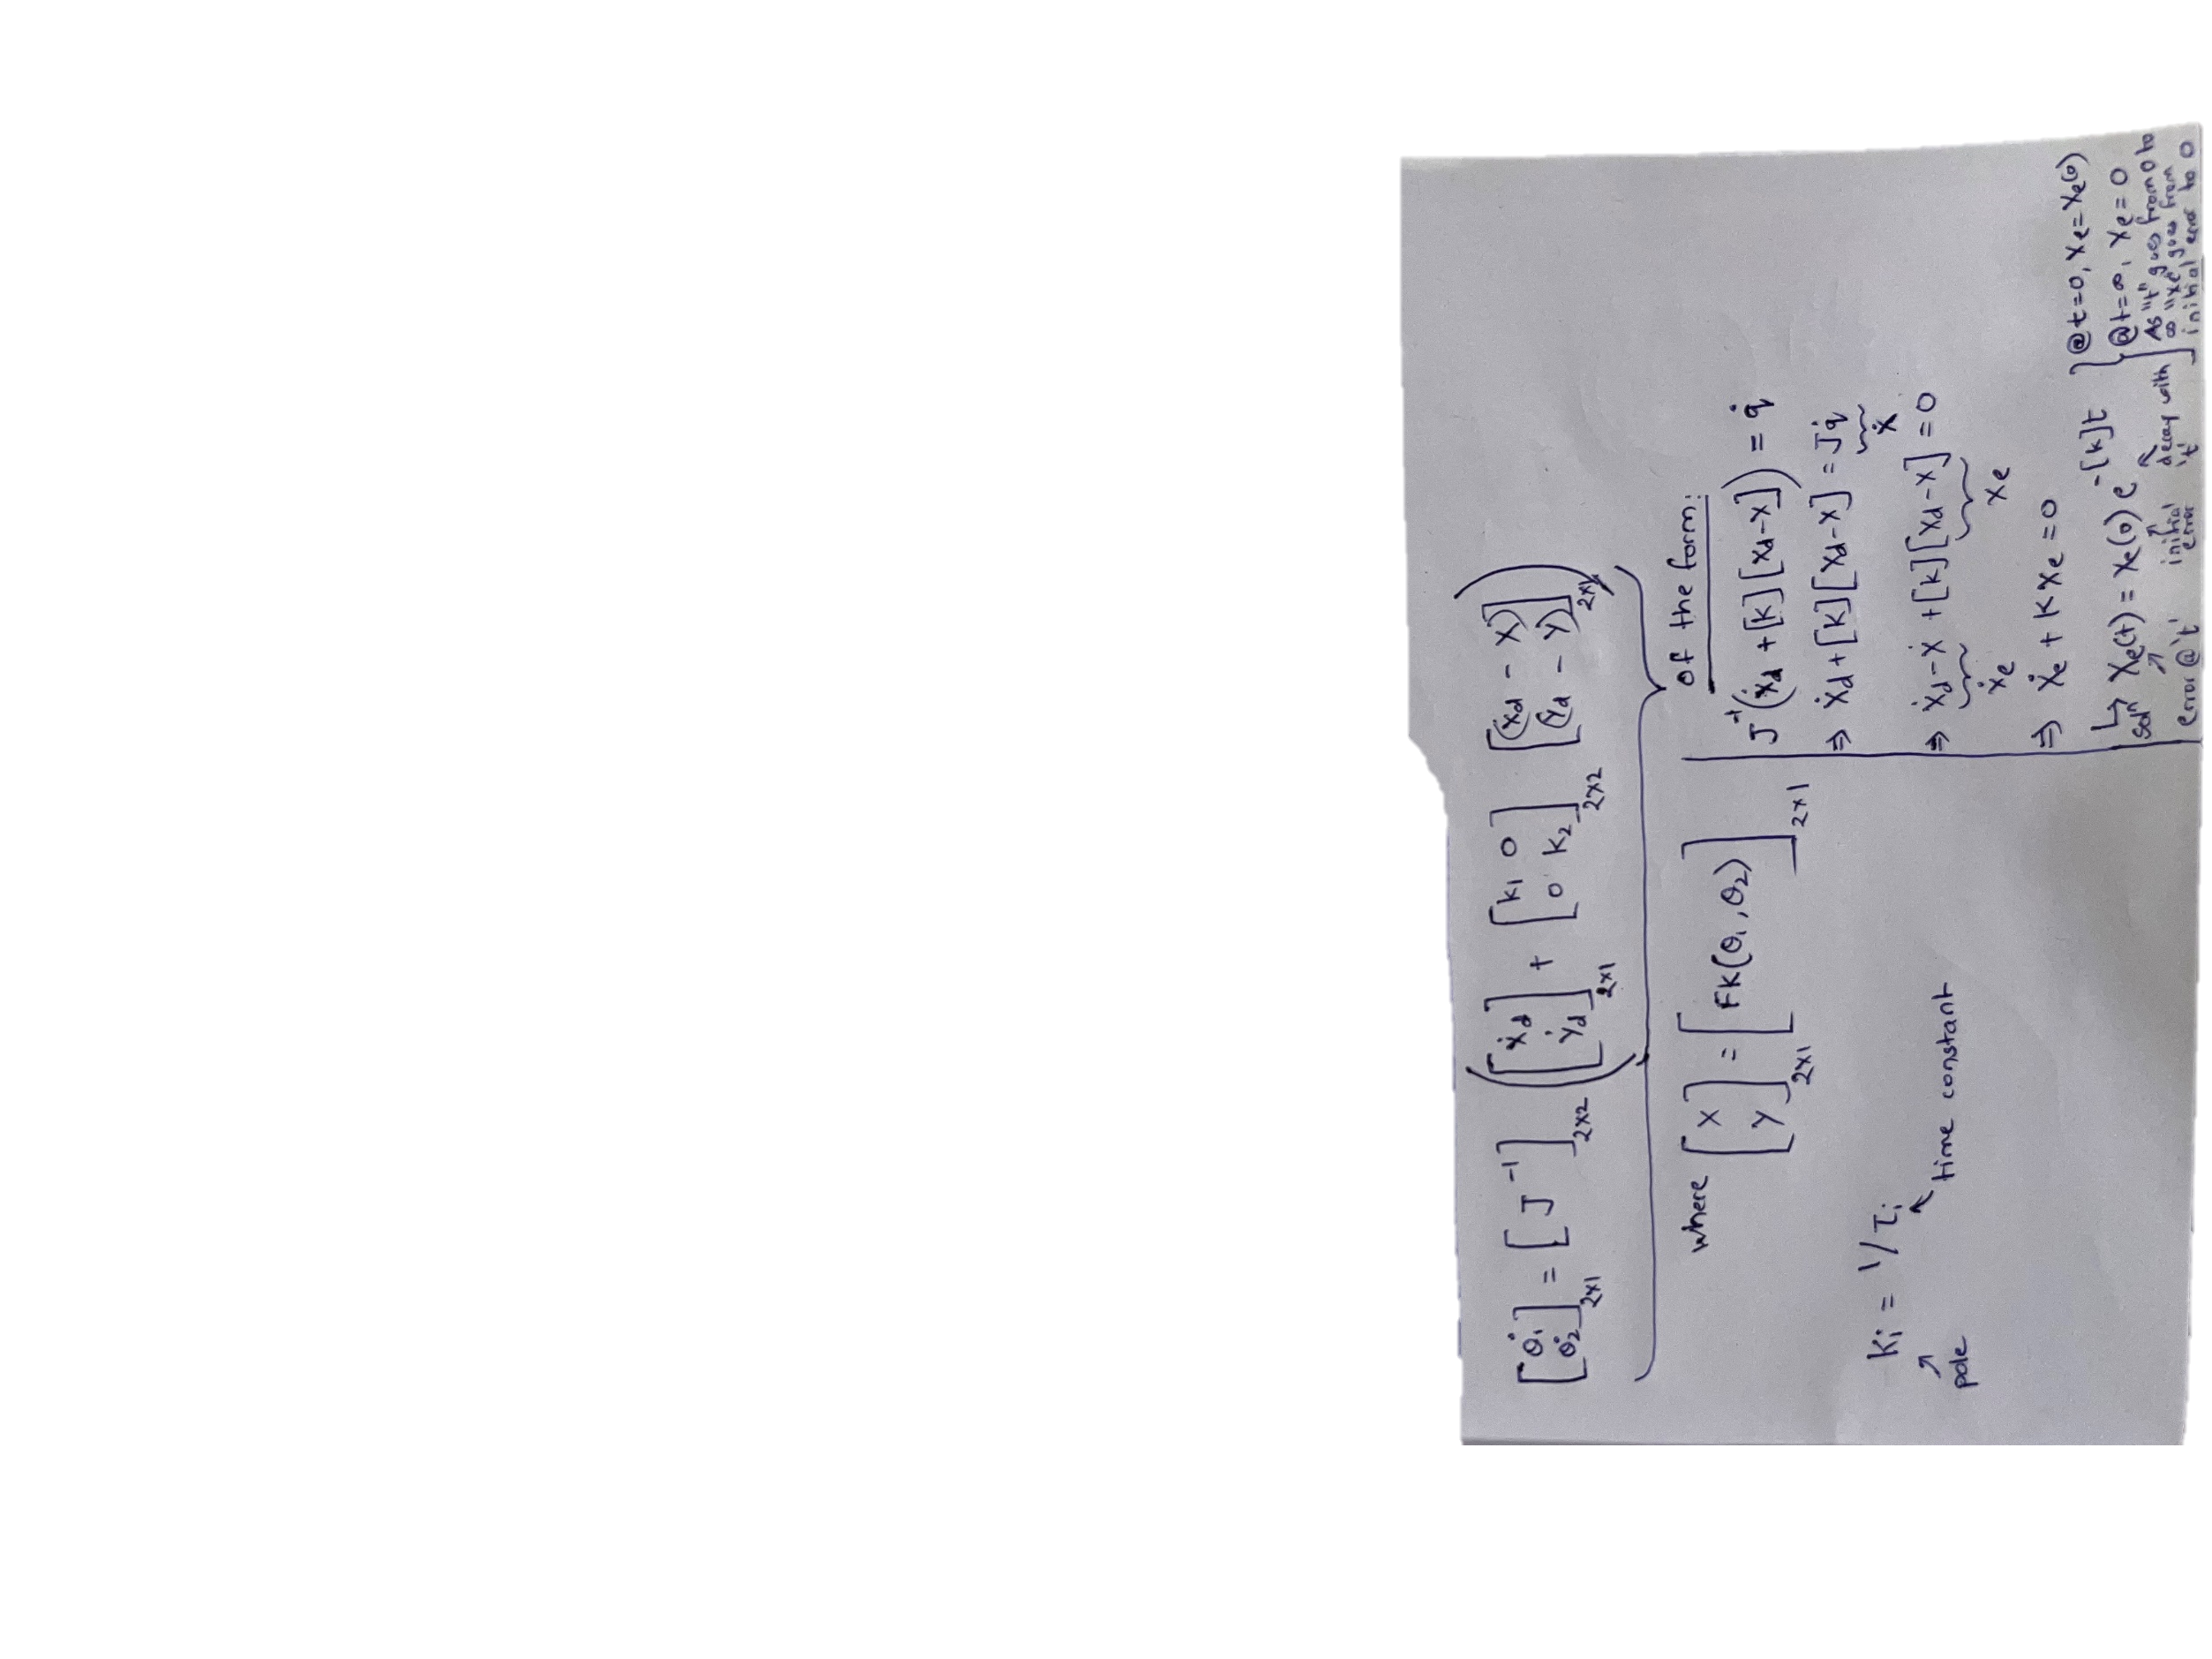 [θ̇₁ θ̇₂]₂ₓ₁ = [J⁻¹]₂ₓ₂ ([ẋd ẏd]₂ₓ₁ + [k₁ 0 0 k₂]₂ₓ₂ [(xd - x) (yd - y)]₂ₓ₁)
where [x y]₂ₓ₁ = [FK(θ₁, θ₂)]₂ₓ₁
Ki = 1/τi
pole
time constant
of the form:
J⁻¹(ẋd + [k][xd-x]) = q̇
⇒ ẋd + [k][xd-x] = Jq̇
ẋ
⇒ ẋd - ẋ + [k][xd-x] = 0
ẋe xe
⇒ ẋe + Kxe = 0
↳ solⁿ xe(t) = xe(0) e^-[k]t
error @ 't' initial error decay with 't'
@t=0, xe = xe(0)
@t=∞, xe = 0
As "t" goes from 0 to
∞ "xe" goes from
initial error to 0